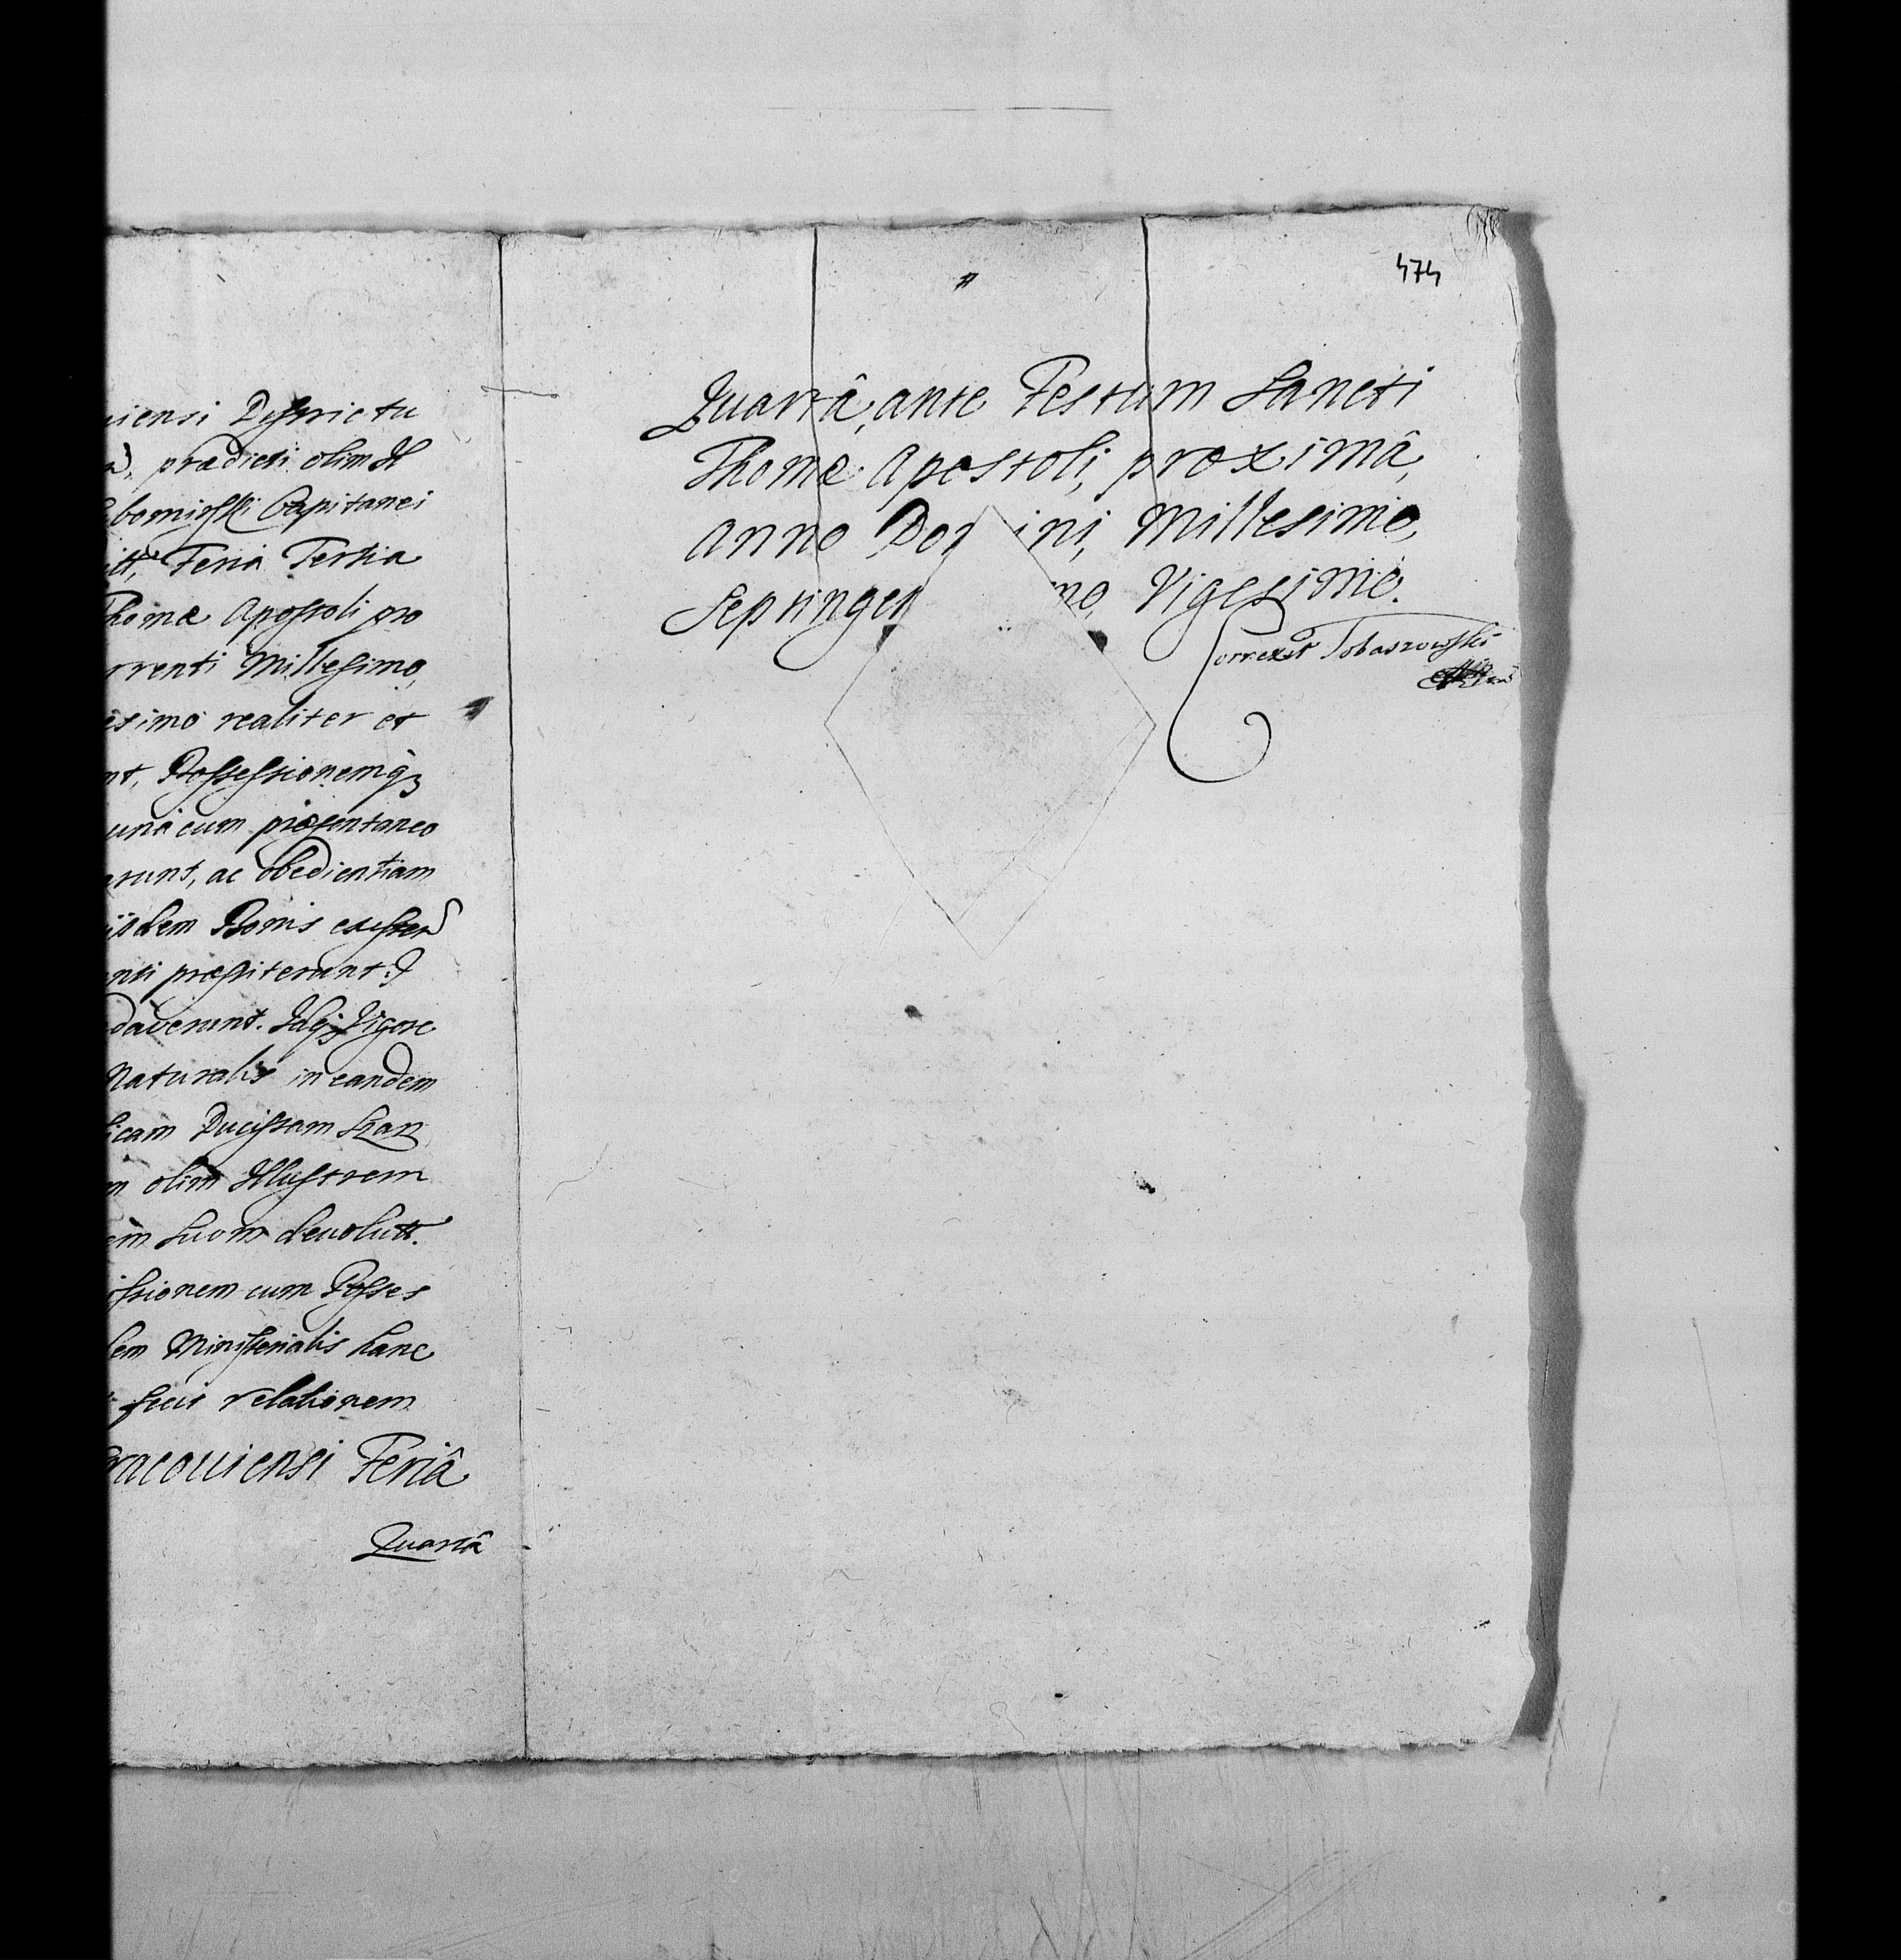 iensi Districtu
prædicti olim Il
bomirski Capitanei
Feria Tertia
Thomæ Apostoli pro
rrenti Millesimo,
esimo realiter et
nt, Possessionemq3
una cum præsentaneo
erunt, ac obedientiam
iisdem Bonis existen
nti præstiterunt &
daverunt. Idq3 Vigore
Naturalis in eandem
icam Ducissam San
m olim Illustrem
em suam devolutt.
issionem cum Posses
dem Ministerialis hanc
fecit relationem
racouiensi Feriâ
Quartâ
474
Quartâ, ante Festum Sancti
Thomæ Apostoli, proximâ,
Anno Do ini, Millesimo,
Septingen mo, Vigesimo.
Correxit Tobaszowski